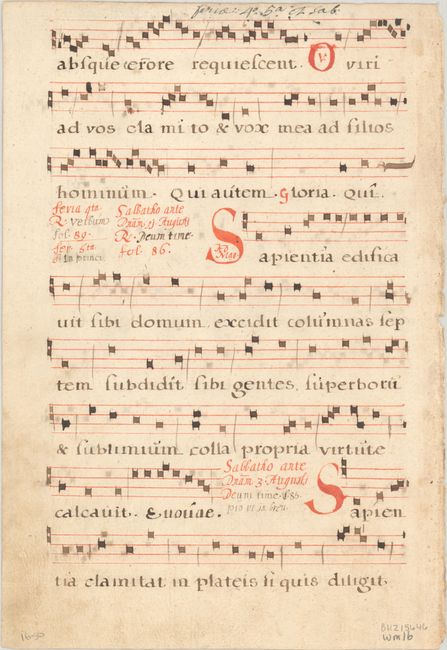 absque errore requiescent. O viri
ad vos cla mi to & vox mea ad filios
hominum. Qui autem. Gloria. Qui.
feria qta.
R. verbum
fol. 89.
fer. 5ta.
in princi.
Sabbatho ante
Dnãm. 2. Augusti
R. Deum time.
fol. 86.
Sapientia edifica
uit sibi domum, excidit columnas sep
tem subdidit sibi gentes, superborũ
& sublimium colla propria virtute
calcauit. Euouae.
Sabbatho ante
Dnãm 3. Augusti
Deum time.
Sapien
tia clamitat in plateis si quis diligit
1650
wm1b